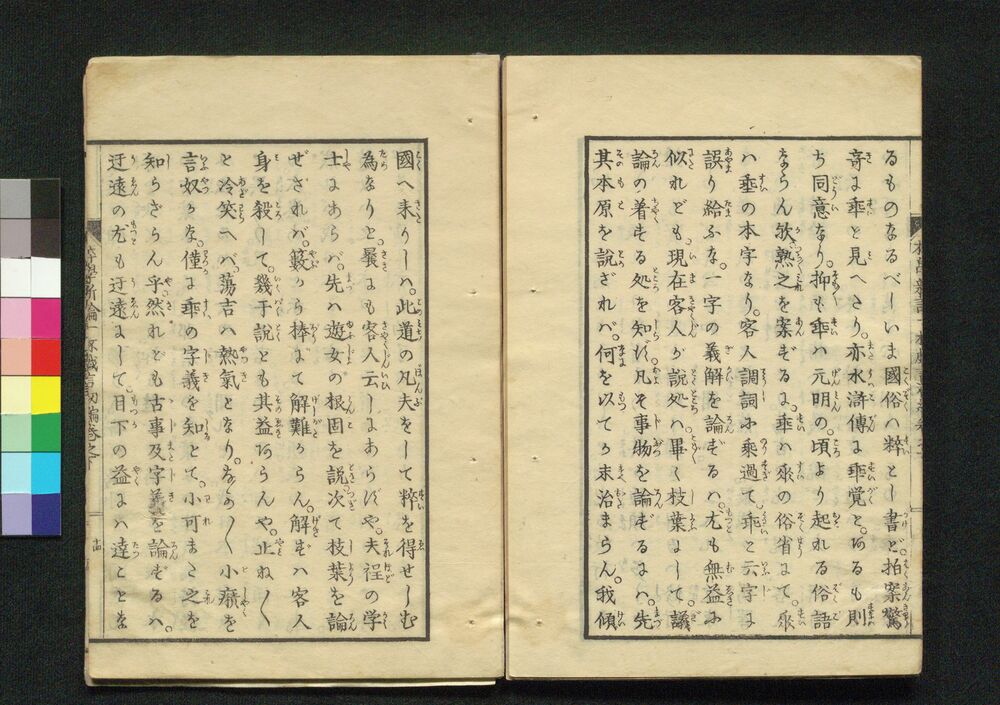 るものなるべしいま國俗ハ粋とし書ど。拍案驚
奇に乖と見へたり。亦水滸傳に乖覚と。あるも則
ち同意なり。抑も乖ハ元明の頃より起れる俗語
ならん欤熟之を案ずるに。乖ハ𠂹の俗省にて。𠂹
ハ垂の本字なり。客人調詞に乗過て。乖と云字に
誤り給ふな。一字の義解を論ずるハ。尤も無益に
似れども。現在客人が説処ハ畢く枝葉にして。議
論の着する処を知らず凡そ事物を論ずるにハ。先
其本原を説ざれバ。何を以てか末治まらん。我傾
國へ来りしハ。此道の凡夫をして粋を得せしむ
為なりと。最にも客人云しにあらずや。夫程の学
士にあらバ。先ハ遊女の根固を説次て枝葉を論
ぜざれバ。籔から棒にて解難からん。解ずハ客人
身を殺して。幾于説とも其益あらんや。止ね〳〵
と冷笑へバ。蕩吉ハ熱氣となり。なる〳〵小癪を
言奴かな。僅に乖の字義を知とて。小可まこ之を
知らざらん乎然れども古事及字義を論ずるハ。
迂遠の尤も迂遠にして。目下の益にハ達ことを
十四